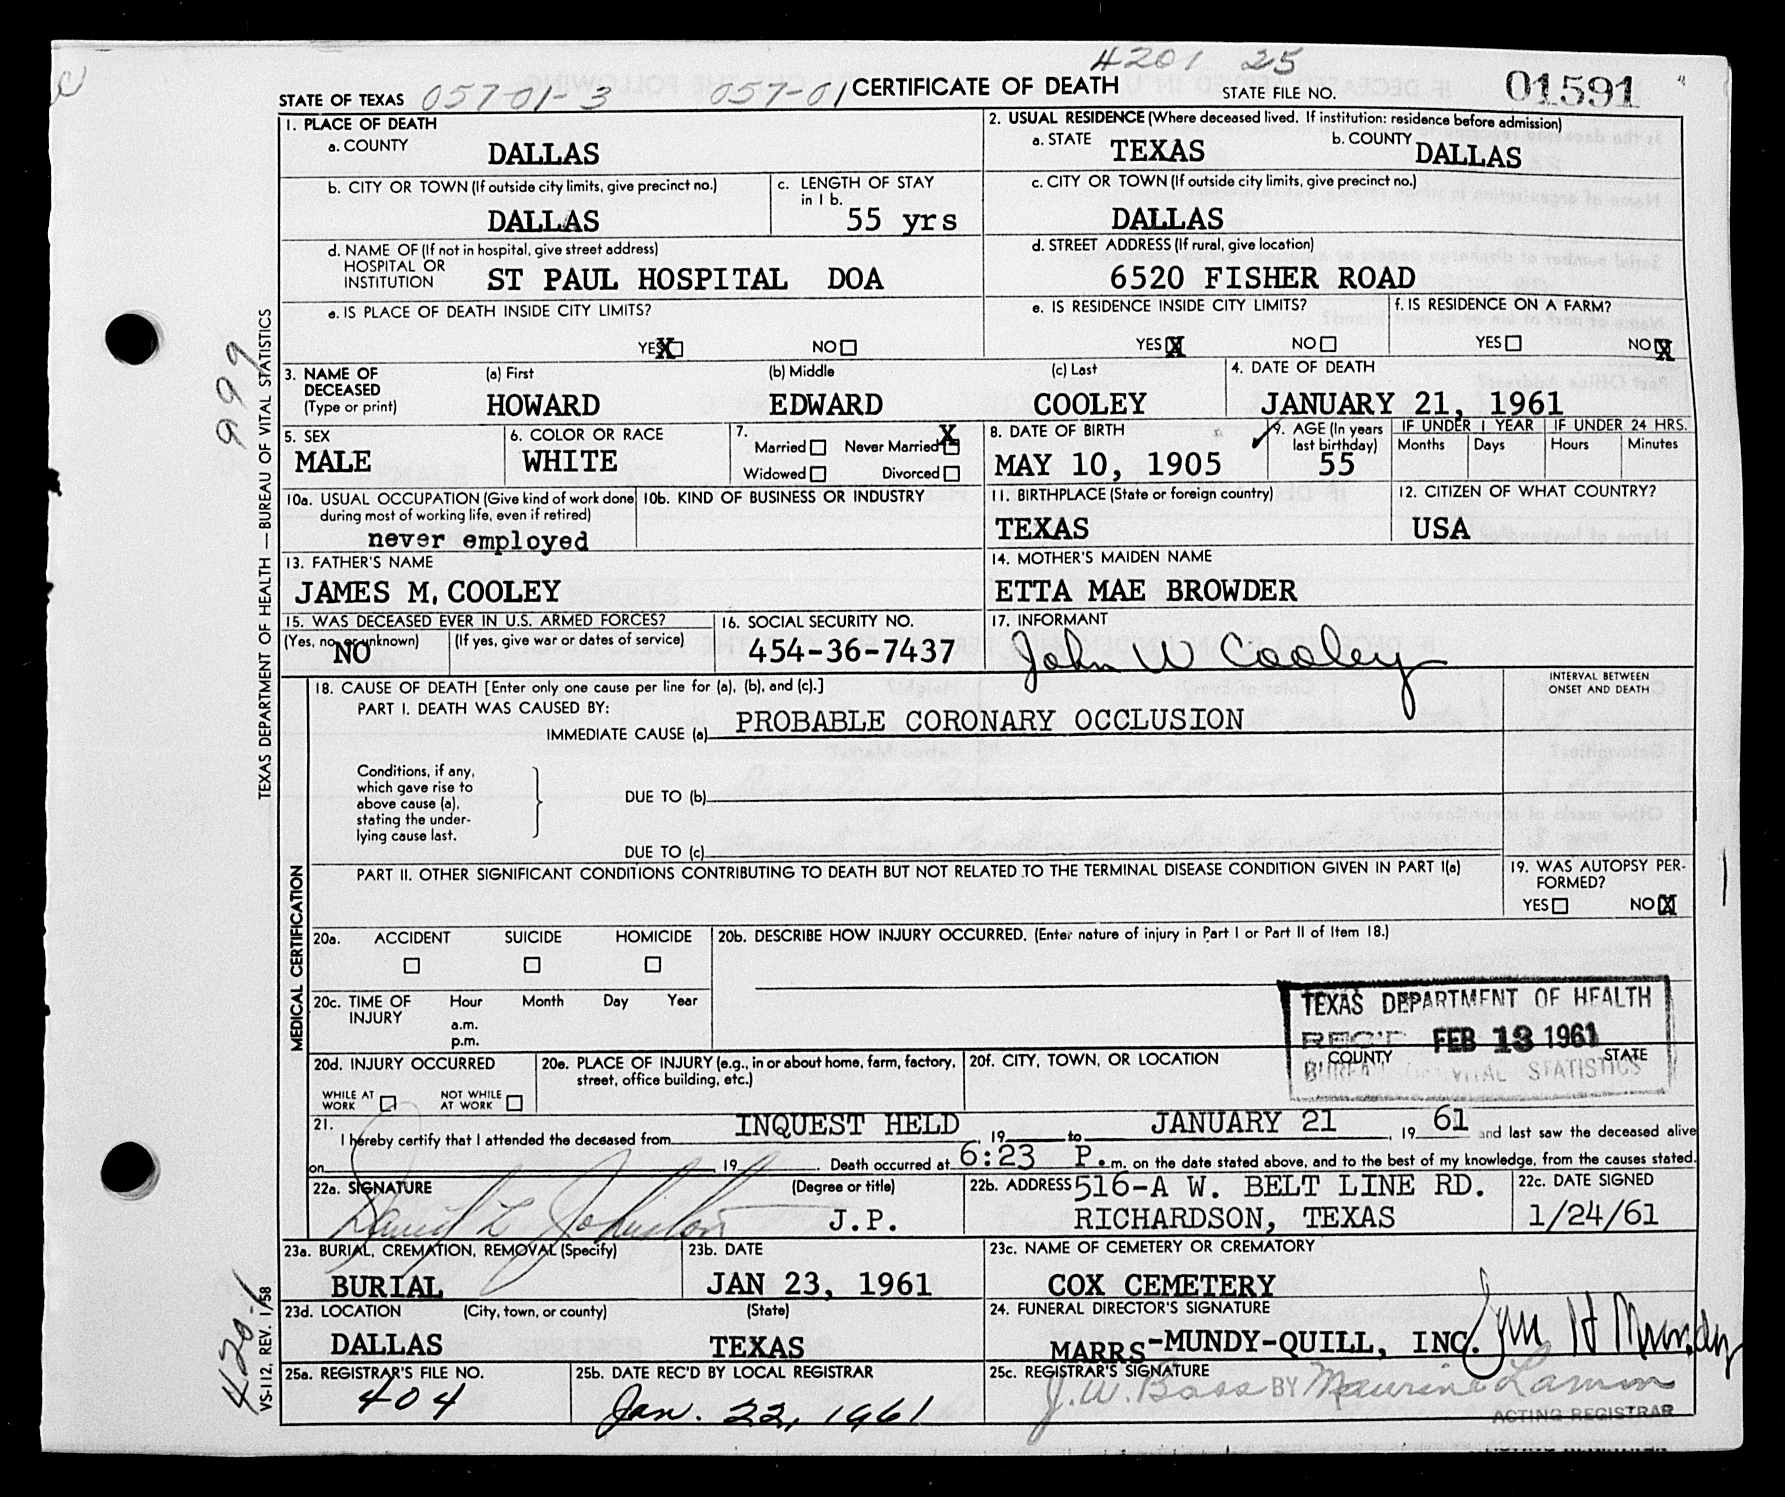 4201 25
STATE OF TEXAS 057-01-3 057-01 CERTIFICATE OF DEATH STATE FILE NO. 01591
1. PLACE OF DEATH
a. COUNTY DALLAS
2. USUAL RESIDENCE (Where deceased lived. If institution: residence before admission)
a. STATE TEXAS b. COUNTY DALLAS
b. CITY OR TOWN (If outside city limits, give precinct no.) DALLAS
c. LENGTH OF STAY in 1 b. 55 yrs
c. CITY OR TOWN (If outside city limits, give precinct no.) DALLAS
d. NAME OF (If not in hospital, give street address)
HOSPITAL OR
INSTITUTION ST PAUL HOSPITAL DOA
d. STREET ADDRESS (If rural, give location)
6520 FISHER ROAD
e. IS PLACE OF DEATH INSIDE CITY LIMITS?
YES X NO
e. IS RESIDENCE INSIDE CITY LIMITS?
YES X NO
f. IS RESIDENCE ON A FARM?
YES NO X
3. NAME OF DECEASED (Type or print)
(a) First (b) Middle (c) Last
HOWARD EDWARD COOLEY
4. DATE OF DEATH
JANUARY 21, 1961
5. SEX
MALE
6. COLOR OR RACE
WHITE
7. Married Never Married X
Widowed Divorced
8. DATE OF BIRTH
MAY 10, 1905
9. AGE (In years last birthday)
55
IF UNDER 1 YEAR IF UNDER 24 HRS.
Months Days Hours Minutes
10a. USUAL OCCUPATION (Give kind of work done during most of working life, even if retired)
never employed
10b. KIND OF BUSINESS OR INDUSTRY
11. BIRTHPLACE (State or foreign country)
TEXAS
12. CITIZEN OF WHAT COUNTRY?
USA
13. FATHER'S NAME
JAMES M. COOLEY
14. MOTHER'S MAIDEN NAME
ETTA MAE BROWDER
15. WAS DECEASED EVER IN U.S. ARMED FORCES?
(Yes, no, or unknown) (If yes, give war or dates of service)
NO
16. SOCIAL SECURITY NO.
454-36-7437
17. INFORMANT
John W Cooley
18. CAUSE OF DEATH [Enter only one cause per line for (a), (b), and (c).]
INTERVAL BETWEEN
ONSET AND DEATH
PART I. DEATH WAS CAUSED BY:
IMMEDIATE CAUSE (a) PROBABLE CORONARY OCCLUSION
Conditions, if any,
which gave rise to
above cause (a),
stating the under-
lying cause last.
DUE TO (b)
DUE TO (c)
PART II. OTHER SIGNIFICANT CONDITIONS CONTRIBUTING TO DEATH BUT NOT RELATED TO THE TERMINAL DISEASE CONDITION GIVEN IN PART I(a)
19. WAS AUTOPSY PER-
FORMED?
YES NO X
20a. ACCIDENT SUICIDE HOMICIDE
20b. DESCRIBE HOW INJURY OCCURRED. (Enter nature of injury in Part I or Part II of Item 18.)
20c. TIME OF INJURY Hour Month Day Year
a.m.
p.m.
TEXAS DEPARTMENT OF HEALTH
REC'D FEB 13 1961
BUREAU OF VITAL STATISTICS
20d. INJURY OCCURRED
WHILE AT WORK NOT WHILE AT WORK
20e. PLACE OF INJURY (e.g., in or about home, farm, factory, street, office building, etc.)
20f. CITY, TOWN, OR LOCATION COUNTY STATE
21. I hereby certify that I attended the deceased from INQUEST HELD, 19 to JANUARY 21, 19 61 and last saw the deceased alive
on , 19 . Death occurred at 6:23 P.m. on the date stated above, and to the best of my knowledge, from the causes stated.
22a. SIGNATURE (Degree or title)
David L Johnston J.P.
22b. ADDRESS 516-A W. BELT LINE RD.
RICHARDSON, TEXAS
22c. DATE SIGNED
1/24/61
23a. BURIAL, CREMATION, REMOVAL (Specify)
BURIAL
23b. DATE
JAN 23, 1961
23c. NAME OF CEMETERY OR CREMATORY
COX CEMETERY
23d. LOCATION (City, town, or county) (State)
DALLAS TEXAS
24. FUNERAL DIRECTOR'S SIGNATURE
MARRS-MUNDY-QUILL, INC. Jim H Mundy
25a. REGISTRAR'S FILE NO.
404
25b. DATE REC'D BY LOCAL REGISTRAR
Jan. 22, 1961
25c. REGISTRAR'S SIGNATURE
J. W. Bass BY Maurine Lamm
ACTING REGISTRAR
MEDICAL CERTIFICATION
TEXAS DEPARTMENT OF HEALTH — BUREAU OF VITAL STATISTICS
999
420-1
VS-112, REV. 1/58